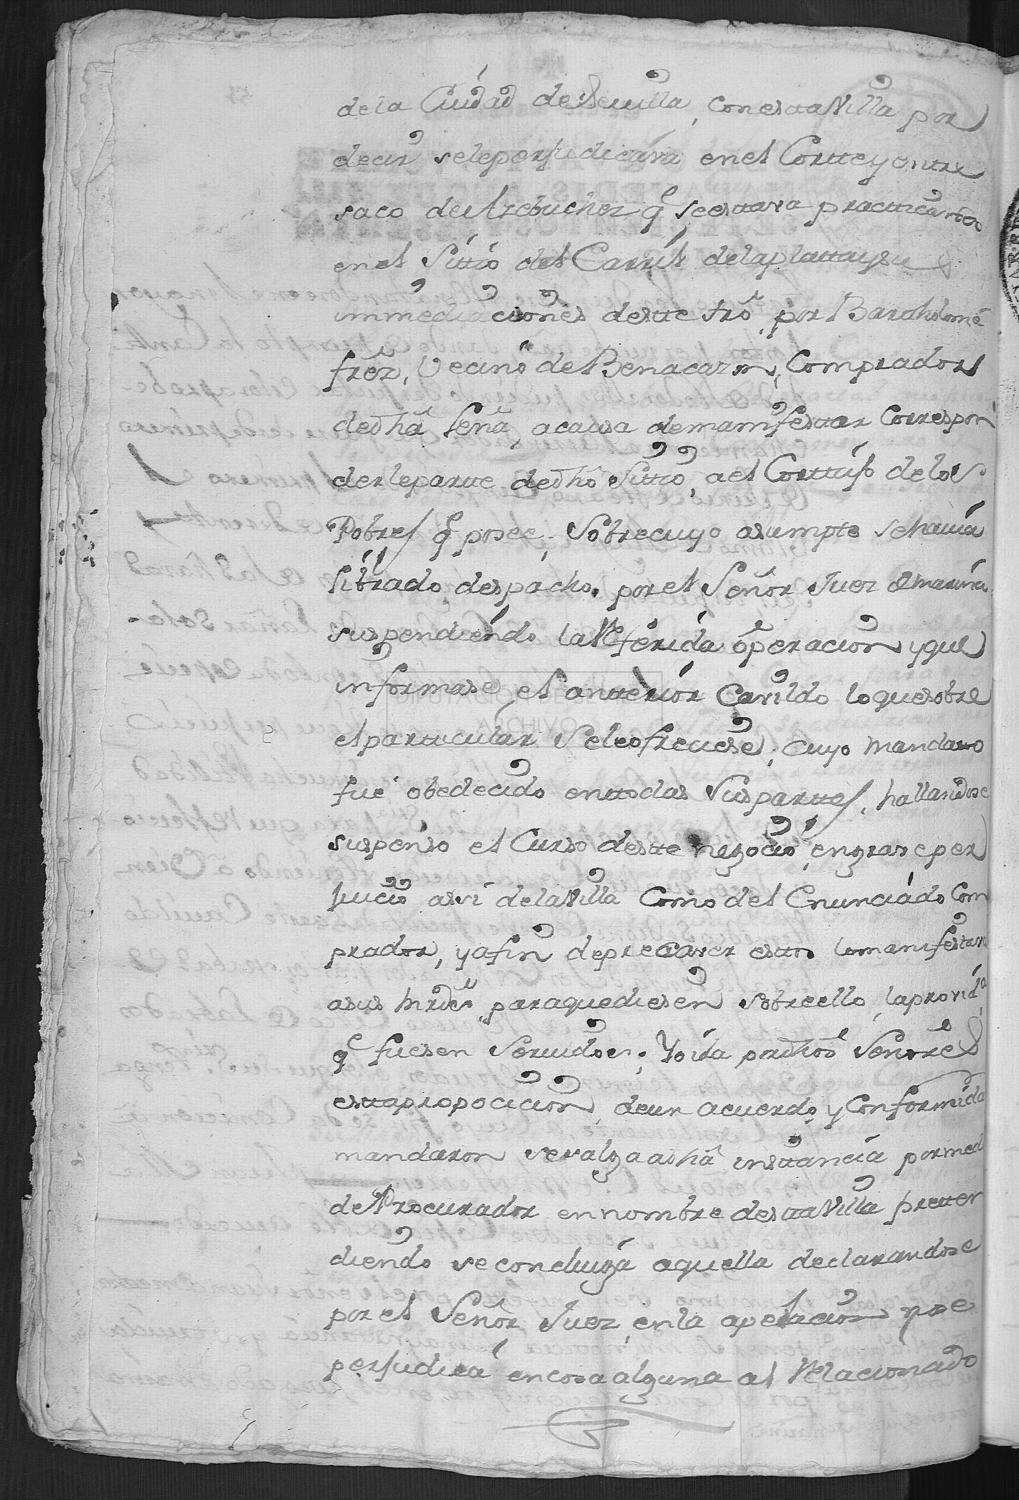 de la Ciudad de Sevilla, con esta Villa por
decir se le perjudicava en el Cortte y entre
saco de Azebuches q̃ se esttava practticando
en el Sittio del Carril de la platta y sus
immediaciones de este trño, por Bartholomé
frẽz, Vecino de Benacazón, Comprador
de dh̃a leña, a causa de manifestar Correspon
derle parte de dh̃o Sittio, a el Corttijo de los
Pobres q̃ posee; Sobre cuyo asumpto se havia
librado despacho, por el Señor Juez de marina
suspendiendo la Referida operacion y que
informase el antterior Cavildo lo que sobre
DIPUTACIÓN DE SEVILLA
ARCHIVO
el particular se le ofreciese; Cuyo mandatto
fué obedecido en ttodas Sus parttes, hallandose
suspenso el Curso de este negocio, en grave per
juicio assi de la Villa Como del Enunciado Com
prador, y a fin de precaver esto lo manifestava
a sus mrđes para que diesen sobre ello la provida
q̃ fuesen Servidos; Y oida por dh̃os Señores
esta propocicion, de un acuerdo, y Conformida
mandaron se salga a dh̃a insttancia por med
de Procurador en nombre de esta Villa pretten
diendo se concluiga aquella declarandose
por el Señor Juez, en la apelacion no se
perjudica en cosa alguna al Relacionado